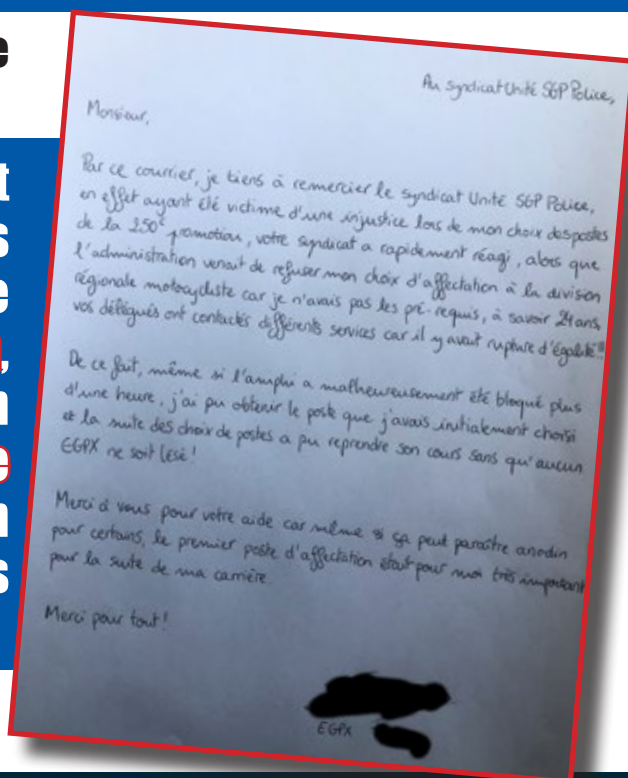 e
t
s
e
,
n
e
n
s
Au syndicat Unité SGP Police,
Monsieur,
Par ce courrier, je tiens à remercier le syndicat Unité SGP Police,
en effet ayant été victime d'une injustice lors de mon choix des postes
de la 250e promotion, votre syndicat a rapidement réagi, alors que
l'administration venait de refuser mon choix d'affectation à la division
régionale motocycliste car je n'avais pas les pré-requis, à savoir 24 ans,
vos délégués ont contactés différents services car il y avait rupture d'égalité!!
De ce fait, même si l'amphi a malheureusement été bloqué plus
d'une heure, j'ai pu obtenir le poste que j'avais initialement choisi
et la suite des choix de postes a pu reprendre son cours sans qu'aucun
EGPX ne soit lésé!
Merci à vous pour votre aide car même si ça peut paraître anodin
pour certains, le premier poste d'affectation était pour moi très important
pour la suite de ma carrière.
Merci pour tout!
EGPX